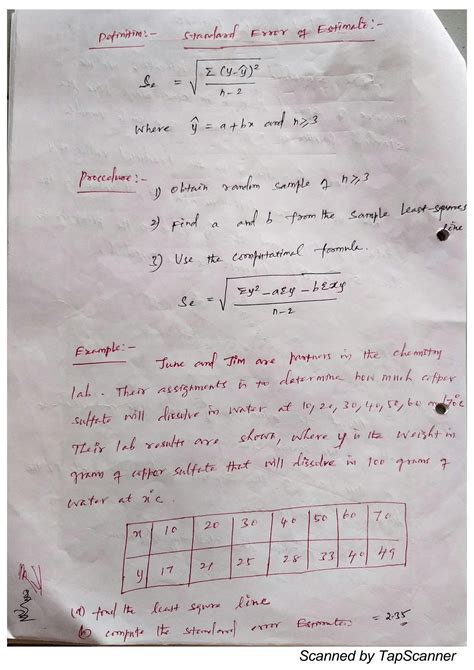 Definition:- Standard Error of Estimate:-
Se = √ Σ(y-ŷ)² / n-2
Where ŷ = a+bx and n≥3
Procedure:-
1) Obtain random sample of n≥3
2) Find a and b from the sample Least-squares
line
3) Use the computational formula.
Se = √ Σy² - aΣy - bΣxy / n-2
Example:-
June and Jim are partners in the chemistry
lab. Their assignments is to determine how much copper
sulfate will dissolve in water at 10, 20, 30, 40, 50, 60 and 70°c
Their lab results are shown, where y is the weight in
grams of copper sulfate that will dissolve in 100 grams of
water at x°c.
x 10 20 30 40 50 60 70
y 17 21 25 28 33 40 49
(a) find the least square line
(b) compute the standard error Estimate. = 2.35
Scanned by TapScanner